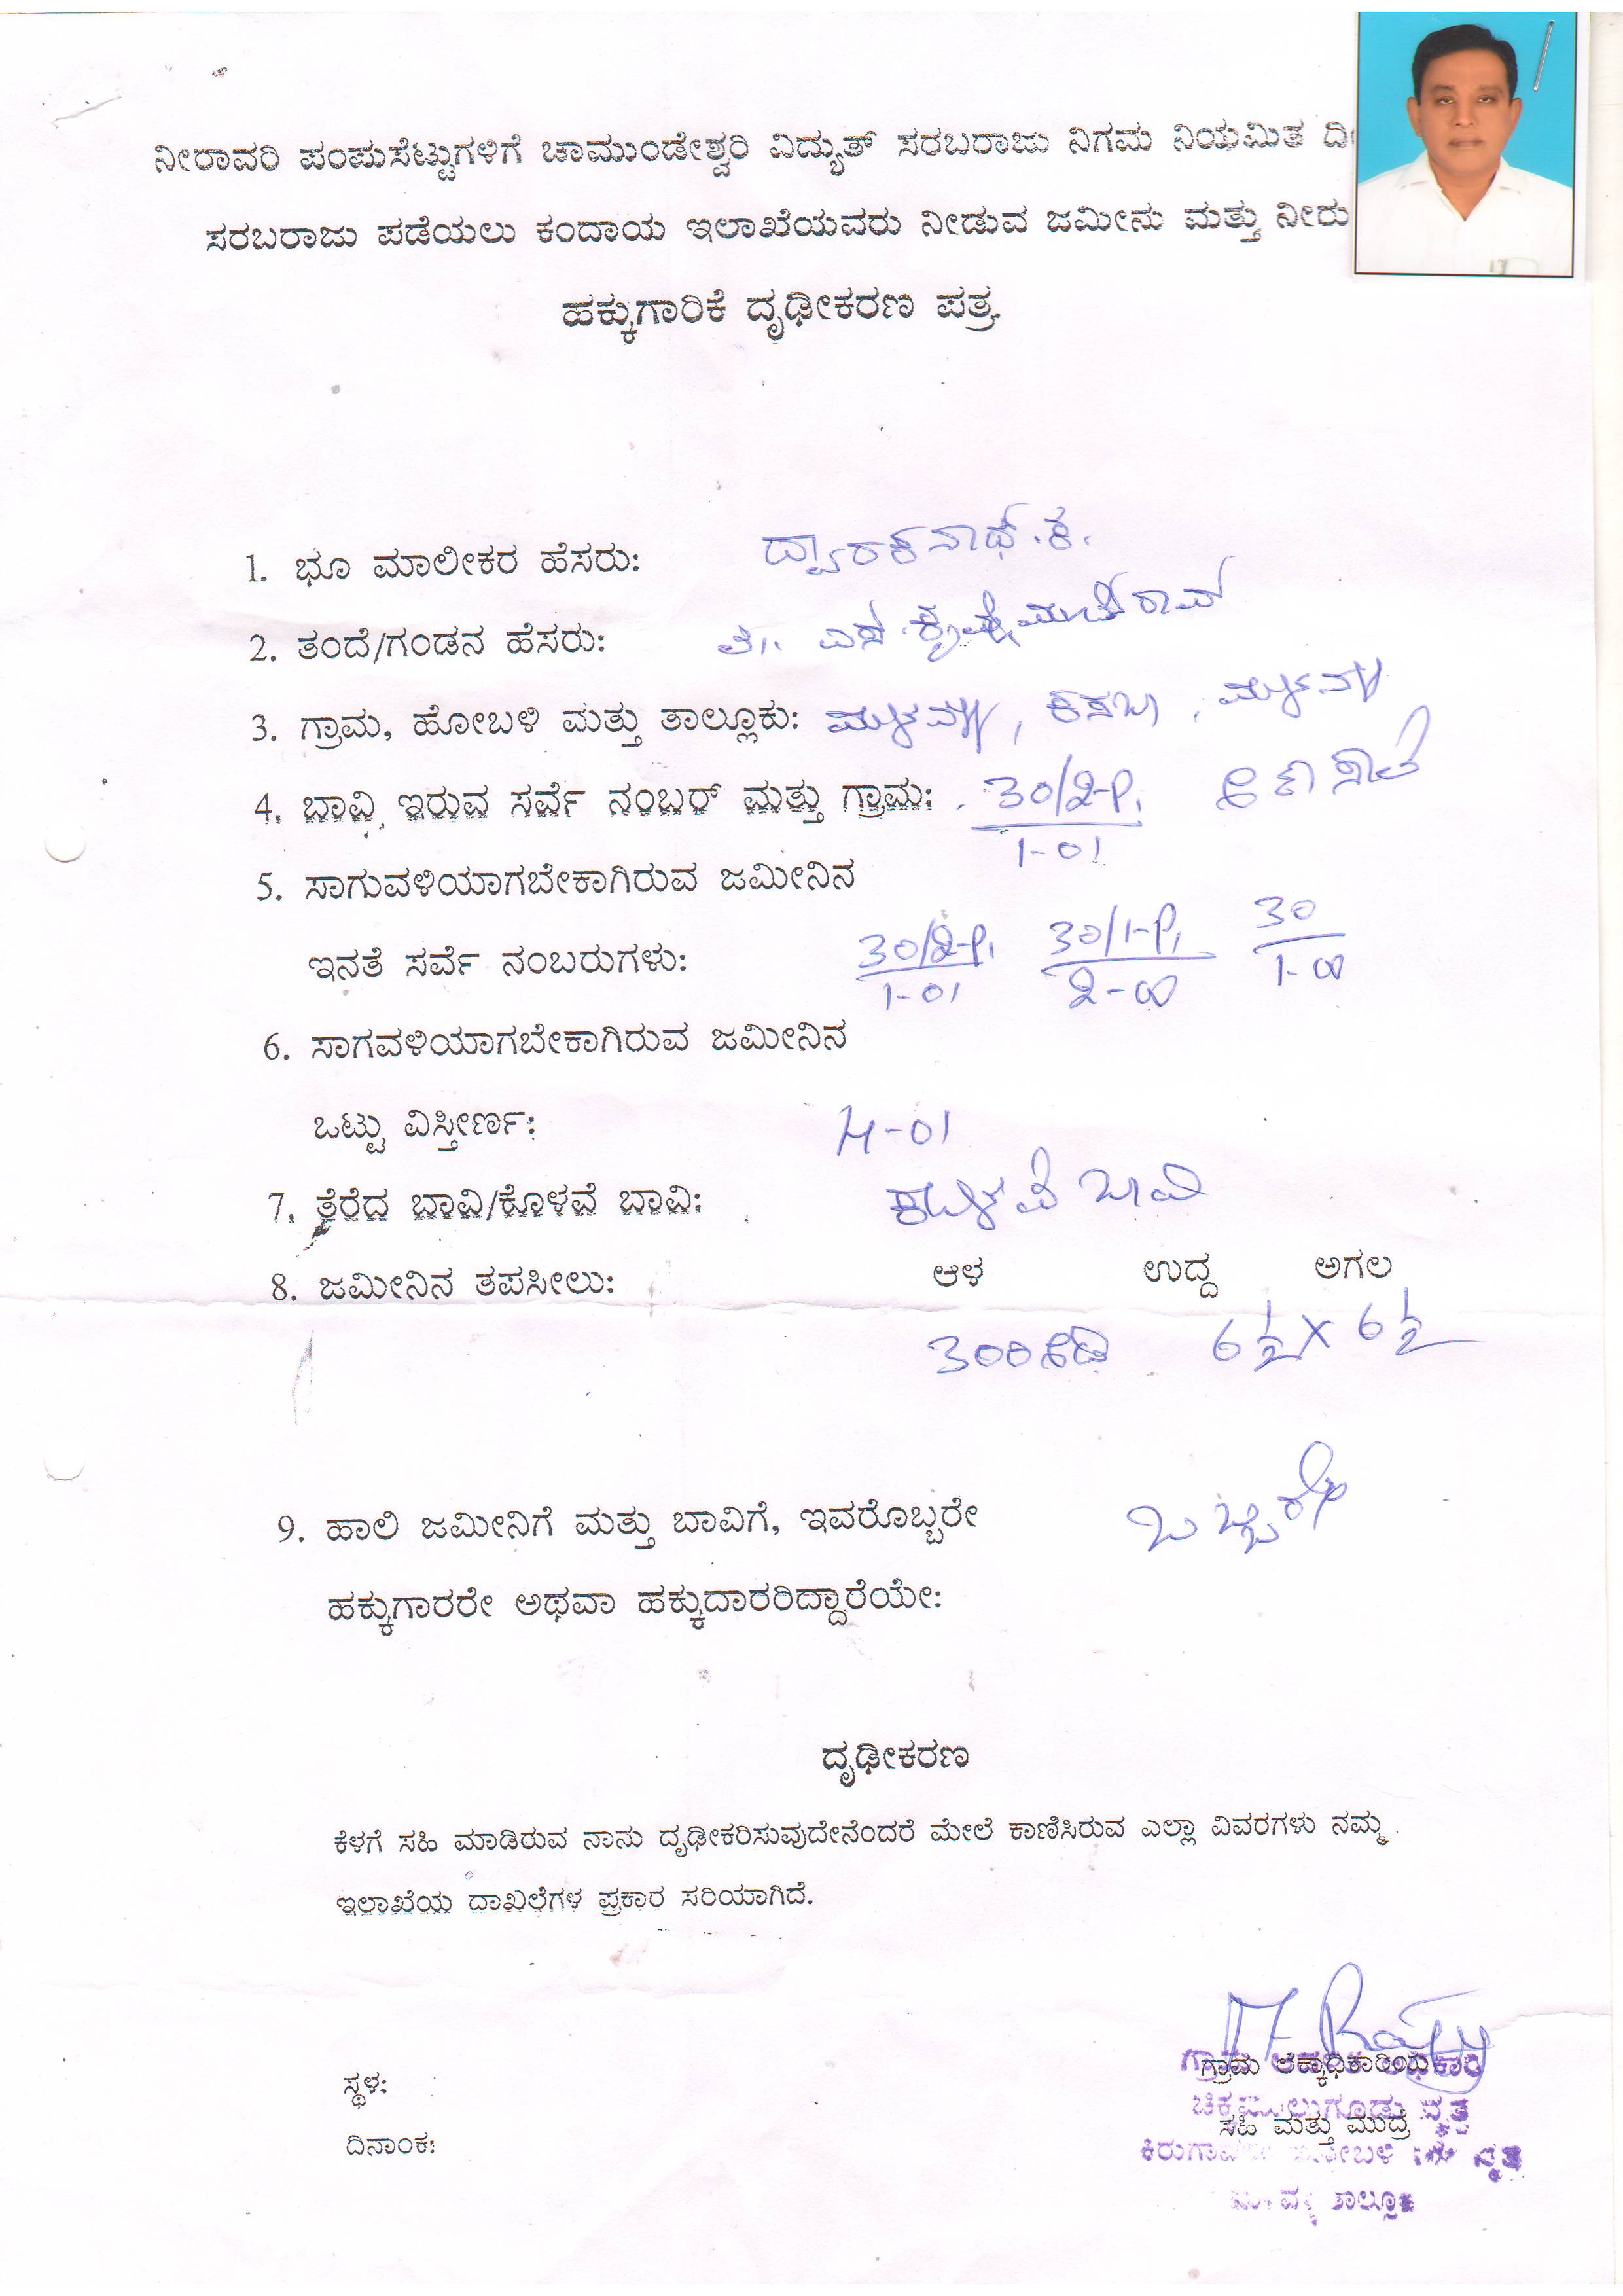 ನೀರಾವರಿ ಪಂಪುಸೆಟ್ಟುಗಳಿಗೆ ಚಾಮುಂಡೇಶ್ವರಿ ವಿದ್ಯುತ್ ಸರಬರಾಜು ನಿಗಮ ನಿಯಮಿತ
ಸರಬರಾಜು ಪಡೆಯಲು ಕಂದಾಯ ಇಲಾಖೆಯವರು ನೀಡುವ ಜಮೀನು ಮತ್ತು ನೀರು
ಹಕ್ಕುಗಾರಿಕೆ ದೃಢೀಕರಣ ಪತ್ರ
1. ಭೂ ಮಾಲೀಕರ ಹೆಸರು: ದ್ವಾರಕನಾಥ್.ಕೆ.
2. ತಂದೆ/ಗಂಡನ ಹೆಸರು:
3. ಗ್ರಾಮ, ಹೋಬಳಿ ಮತ್ತು ತಾಲ್ಲೂಕು: ಮಳವಳ್ಳಿ, ಕಸಬಾ, ಮಳವಳ್ಳಿ
4. ಬಾವಿ ಇರುವ ಸರ್ವೆ ನಂಬರ್ ಮತ್ತು ಗ್ರಾಮ: 30/2-P1
1-01
5. ಸಾಗುವಳಿಯಾಗಬೇಕಾಗಿರುವ ಜಮೀನಿನ
ಇನತೆ ಸರ್ವೆ ನಂಬರುಗಳು: 30/2-P1 30/1-P1 30
1-01 2-00 1-00
6. ಸಾಗವಳಿಯಾಗಬೇಕಾಗಿರುವ ಜಮೀನಿನ
ಒಟ್ಟು ವಿಸ್ತೀರ್ಣ: 4-01
7. ತೆರೆದ ಬಾವಿ/ಕೊಳವೆ ಬಾವಿ: ಕೊಳವೆ ಬಾವಿ
8. ಜಮೀನಿನ ತಪಸೀಲು: ಆಳ ಉದ್ದ ಅಗಲ
300 ಅಡಿ 6½ X 6½
9. ಹಾಲಿ ಜಮೀನಿಗೆ ಮತ್ತು ಬಾವಿಗೆ, ಇವರೊಬ್ಬರೇ ಒಬ್ಬರೇ
ಹಕ್ಕುಗಾರರೇ ಅಥವಾ ಹಕ್ಕುದಾರರಿದ್ದಾರೆಯೇ:
ದೃಢೀಕರಣ
ಕೆಳಗೆ ಸಹಿ ಮಾಡಿರುವ ನಾನು ದೃಢೀಕರಿಸುವುದೇನೆಂದರೆ ಮೇಲೆ ಕಾಣಿಸಿರುವ ಎಲ್ಲಾ ವಿವರಗಳು ನಮ್ಮ
ಇಲಾಖೆಯ ದಾಖಲೆಗಳ ಪ್ರಕಾರ ಸರಿಯಾಗಿದೆ.
ಸ್ಥಳ: ಗ್ರಾಮ ಲೆಕ್ಕಾಧಿಕಾರಿಯ
ದಿನಾಂಕ: ಸಹಿ ಮತ್ತು ಮುದ್ರೆ